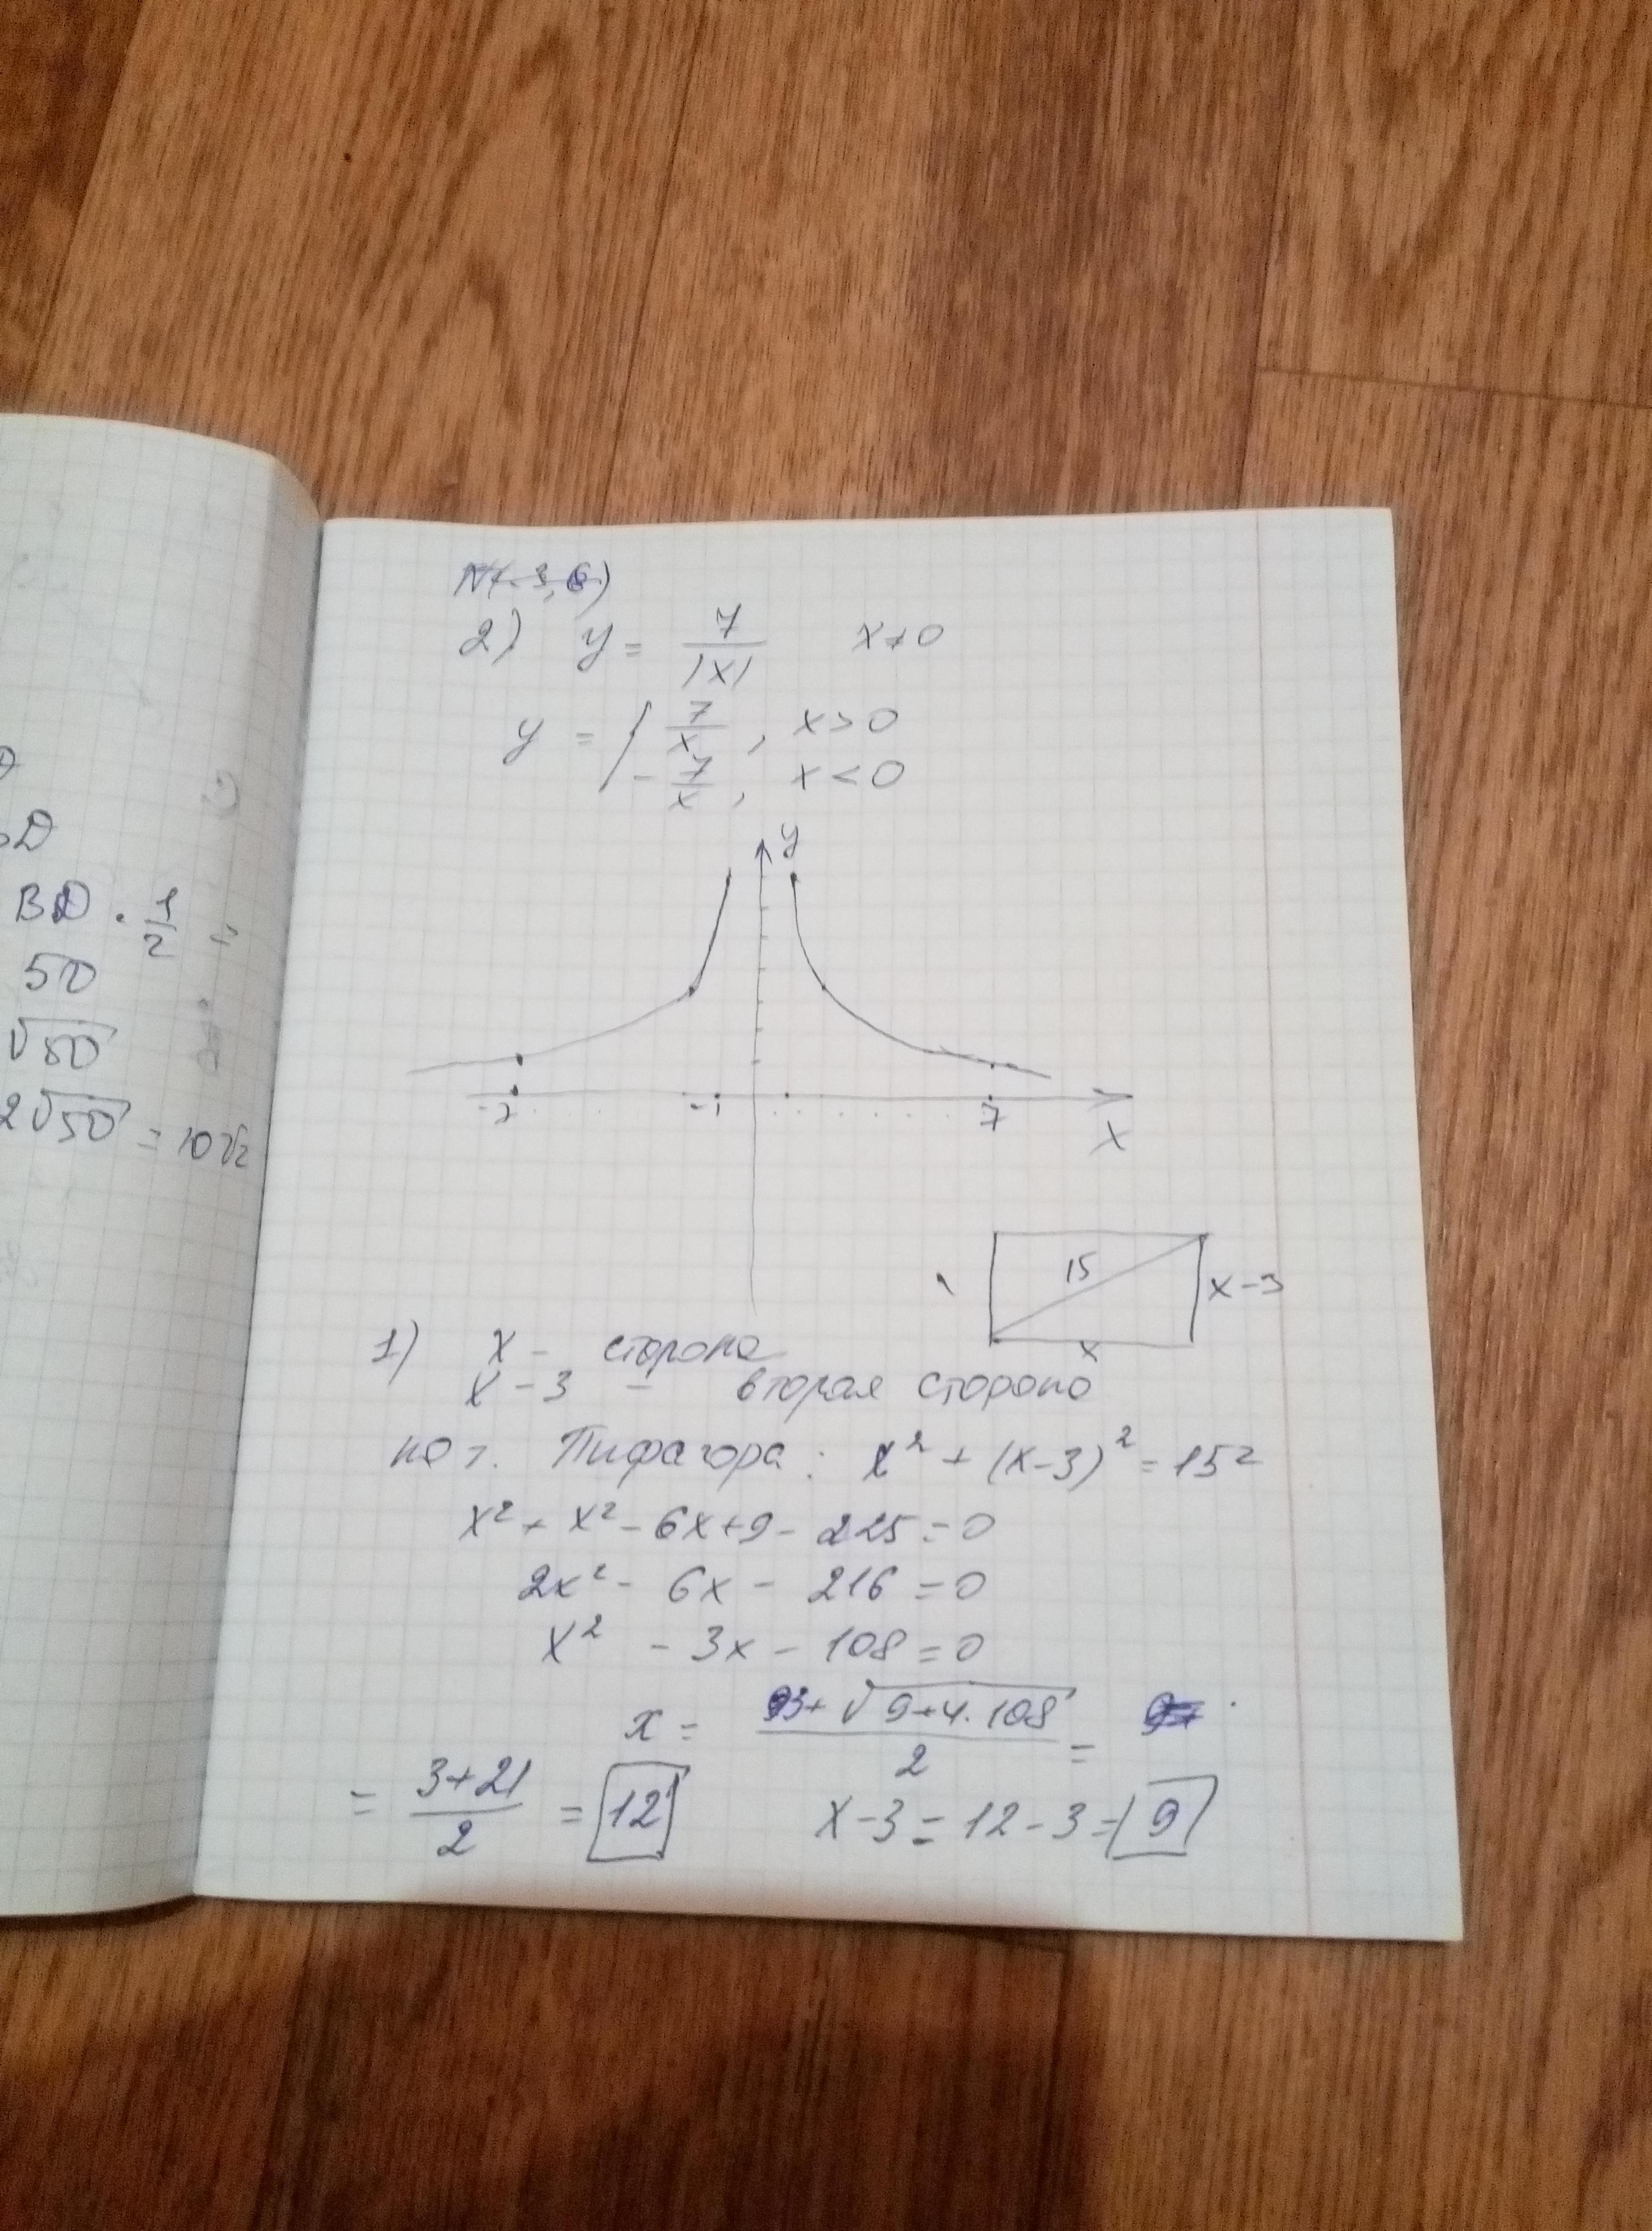 BD · 1/2 =
50
√50
2√50 = 10√2
N(-3,6)
2) y = 7/|x| x≠0
y = { 7/x , x>0
- 7/x , x<0
y
-7 -1 7
x
15
x-3
x
1) x - сторона
x-3 - вторая сторона
по т. Пифагора: x² + (x-3)² = 15²
x² + x² - 6x + 9 - 225 = 0
2x² - 6x - 216 = 0
x² - 3x - 108 = 0
x = 3+√9+4·108/2 =
= 3+21/2 = 12 x-3 = 12-3 = 9